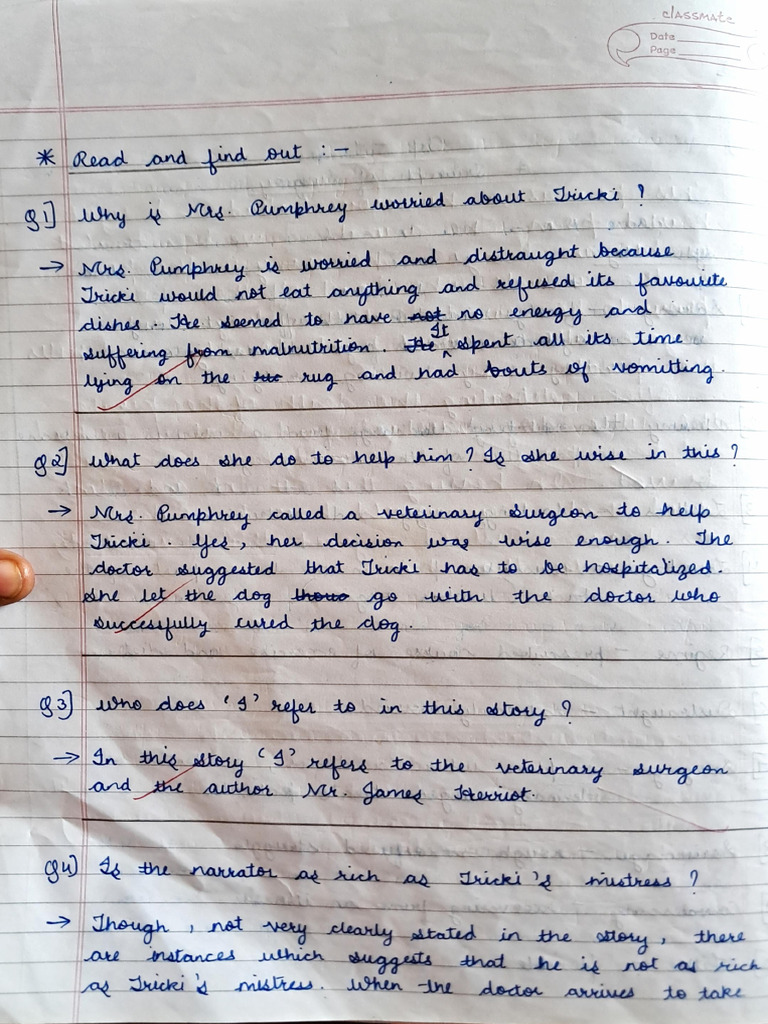 classmate
Date
Page
* Read and find out :-
Q1] Why is Mrs. Pumphrey worried about Tricki ?
→ Mrs. Pumphrey is worried and distraught because
Tricki would not eat anything and refused its favourite
dishes. He seemed to have not no energy and
suffering from malnutrition. The It spent all its time
lying on the rug and had bouts of vomitting.
Q2] What does she do to help him? Is she wise in this?
→ Mrs. Pumphrey called a veterinary surgeon to help
Tricki. Yes, her decision was wise enough. The
doctor suggested that Tricki has to be hospitalized.
She let the dog go with the doctor who
successfully cured the dog.
Q3] Who does 'I' refer to in this story ?
→ In this story 'I' refers to the veterinary surgeon
and the author Mr. James Herriot.
Q4] Is the narrator as rich as Tricki's mistress ?
→ Though, not very clearly stated in the story, there
are instances which suggests that he is not as rich
as Tricki's mistress. When the doctor arrives to take